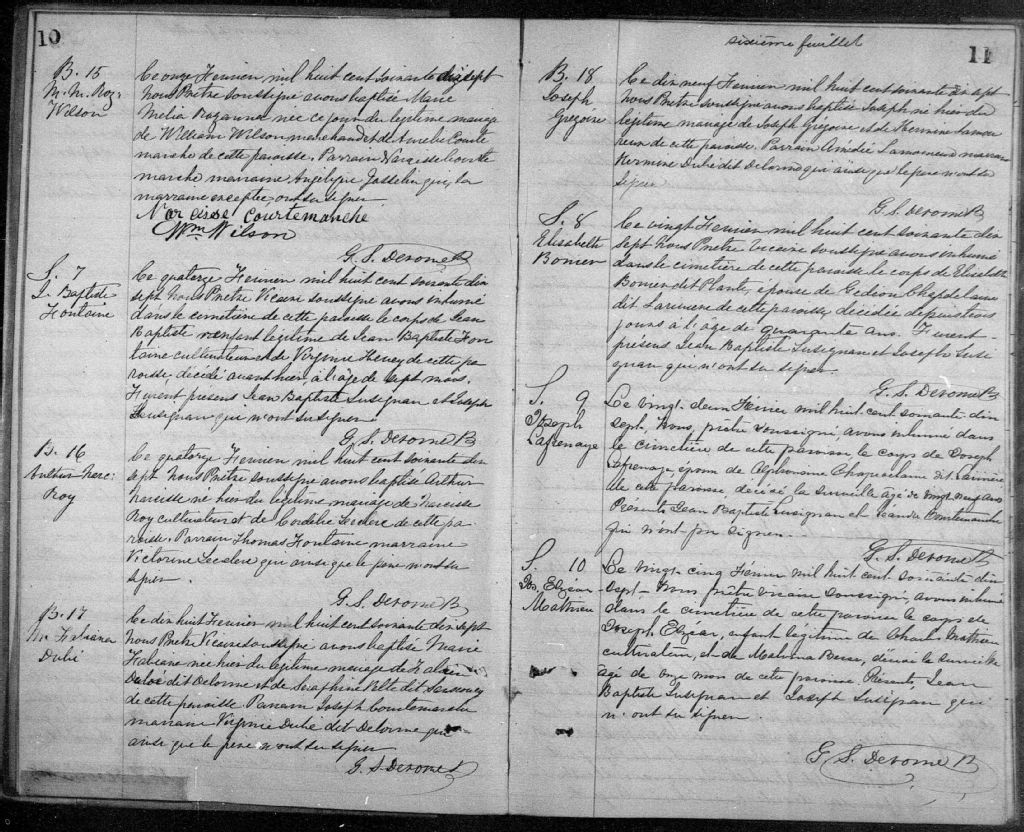 10
B. 15
M. M. Roz-
Wilson
Le onze Fevrier mil huit cent soixante dix sept
Nous Prêtre soussigné avons baptisé Marie
Melia Rozanna née ce jour du legitime mariage
de William Wilson marchand et de Amelie Courte
marche de cette paroisse. Parrain Narcisse Courte
marche marraine Angélique Josselin qui, la
marraine exceptée, ont su signer
Narcisse Courtemanche
Wm Wilson
G. S. Derome P.
S. 7
J. Baptiste
Fontaine
Le quatorze Fevrier mil huit cent soixante dix
sept Nous Prêtre Vicaire soussigné avons inhumé
dans le cimetière de cette paroisse le corps de Jean
Baptiste enfant légitime de Jean Baptiste Fon
taine cultivateur et de Virginie Henry de cette pa
roisse, décédé avant hier, à l'âge de sept mois.
Furent presens Jean Baptiste Lusignan et Joseph
Lusignan qui n'ont su signer
G. S. Derome P
B. 16
Arthur Narc:
Roy
Le quatorze Fevrier mil huit cent soixante dix
sept Nous Prêtre soussigné avons baptisé Arthur
Narcisse né hier du legitime mariage de Narcisse
Roy cultivateur et de Cordélie Leclerc de cette pa
roisse. Parrain Thomas Fontaine marraine
Victorine Leclerc qui ainsi que le père n'ont su
signer.
G. S. Derome P.
B. 17
M. Fabiana
Dubé
Le dix huit Fevrier mil huit cent soixante dix sept
Nous Prêtre Vicaire soussigné avons baptisé Marie
Fabiane née hier du legitime mariage de Fabien
Dubé dit Delorme et de Seraphine
de cette paroisse Parrain Joseph Courtemarche
marraine Virginie Dubé dit Delorme qui
ainsi que le père n'ont su signer
G. S. Derome P
sixième feuillet
11
B. 18
Joseph
Grégoire
Le dix neuf Fevrier mil huit cent soixante dix sept
Nous Prêtre soussigné avons baptisé Joseph né hier du
légitime mariage de Joseph Grégoire et de Hermine Lamou
reux de cette paroisse. Parrain Amédée Lamoureux marraine
Hermine Dubé dit Delorme qui ainsi que le père n'ont su
signer
G. S. Derome P
S. 8
Elisabeth
Bonier
Le vingt Fevrier mil huit cent soixante dix
sept Nous Prêtre Vicaire soussigné avons inhumé
dans le cimetière de cette paroisse le corps de Elisabeth
Bonier dit Plante, epouse de Gedion Chapdelaine
dit Lariviere de cette paroisse, décédée depuis trois
jours à l'age de quarante ans. Furent
presens Jean Baptiste Lusignan et Joseph Lusi
gnan qui n'ont su signer.
G. S. Derome P
S. 9
Joseph
Lafrenaye
Le vingt deux Février mil huit cent soixante dix
sept, Nous, prêtre soussigné, avons inhumé dans
le cimetière de cette paroisse, le corps de Joseph
Lafrenaye, epoux de Alphonsine Chapdelaine dit Larivière
de cette paroisse, décédé la surveille agé de vingt neuf ans
Présents Jean Baptiste Lusignan et Léandre Courtemanche
qui n'ont pu signer.
G. S. Derome P
S. 10
Jos. Elzéar
Mathieu
Le vingt cinq Février mil huit cent soixante dix
sept, Nous prêtre vicaire soussigné, avons inhumé
dans le cimetière de cette paroisse le corps de
Joseph Elzéar, enfant légitime de Charles Mathieu
cultivateur, et de Malvina décédé la surveille
agé de onze mois de cette paroisse. Présents, Jean
Baptiste Lusignan et Joseph Lusignan qui
n'ont su signer.
G. S. Derome P